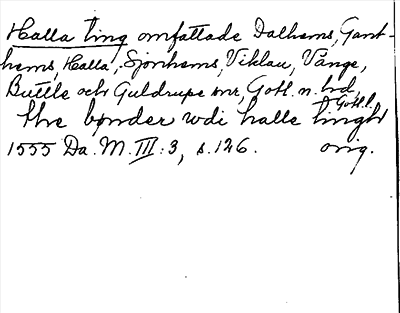 Halla ting omfattade Dalhems, Gant-
hems, Halla, Sjonhems, Viklau, Vänge,
Buttle och Guldrupe snr, Gotl. n. hd,
Gotl l.
the bønder wdi halle tinght
1555 Da. M. III: 3, s. 126. orig.